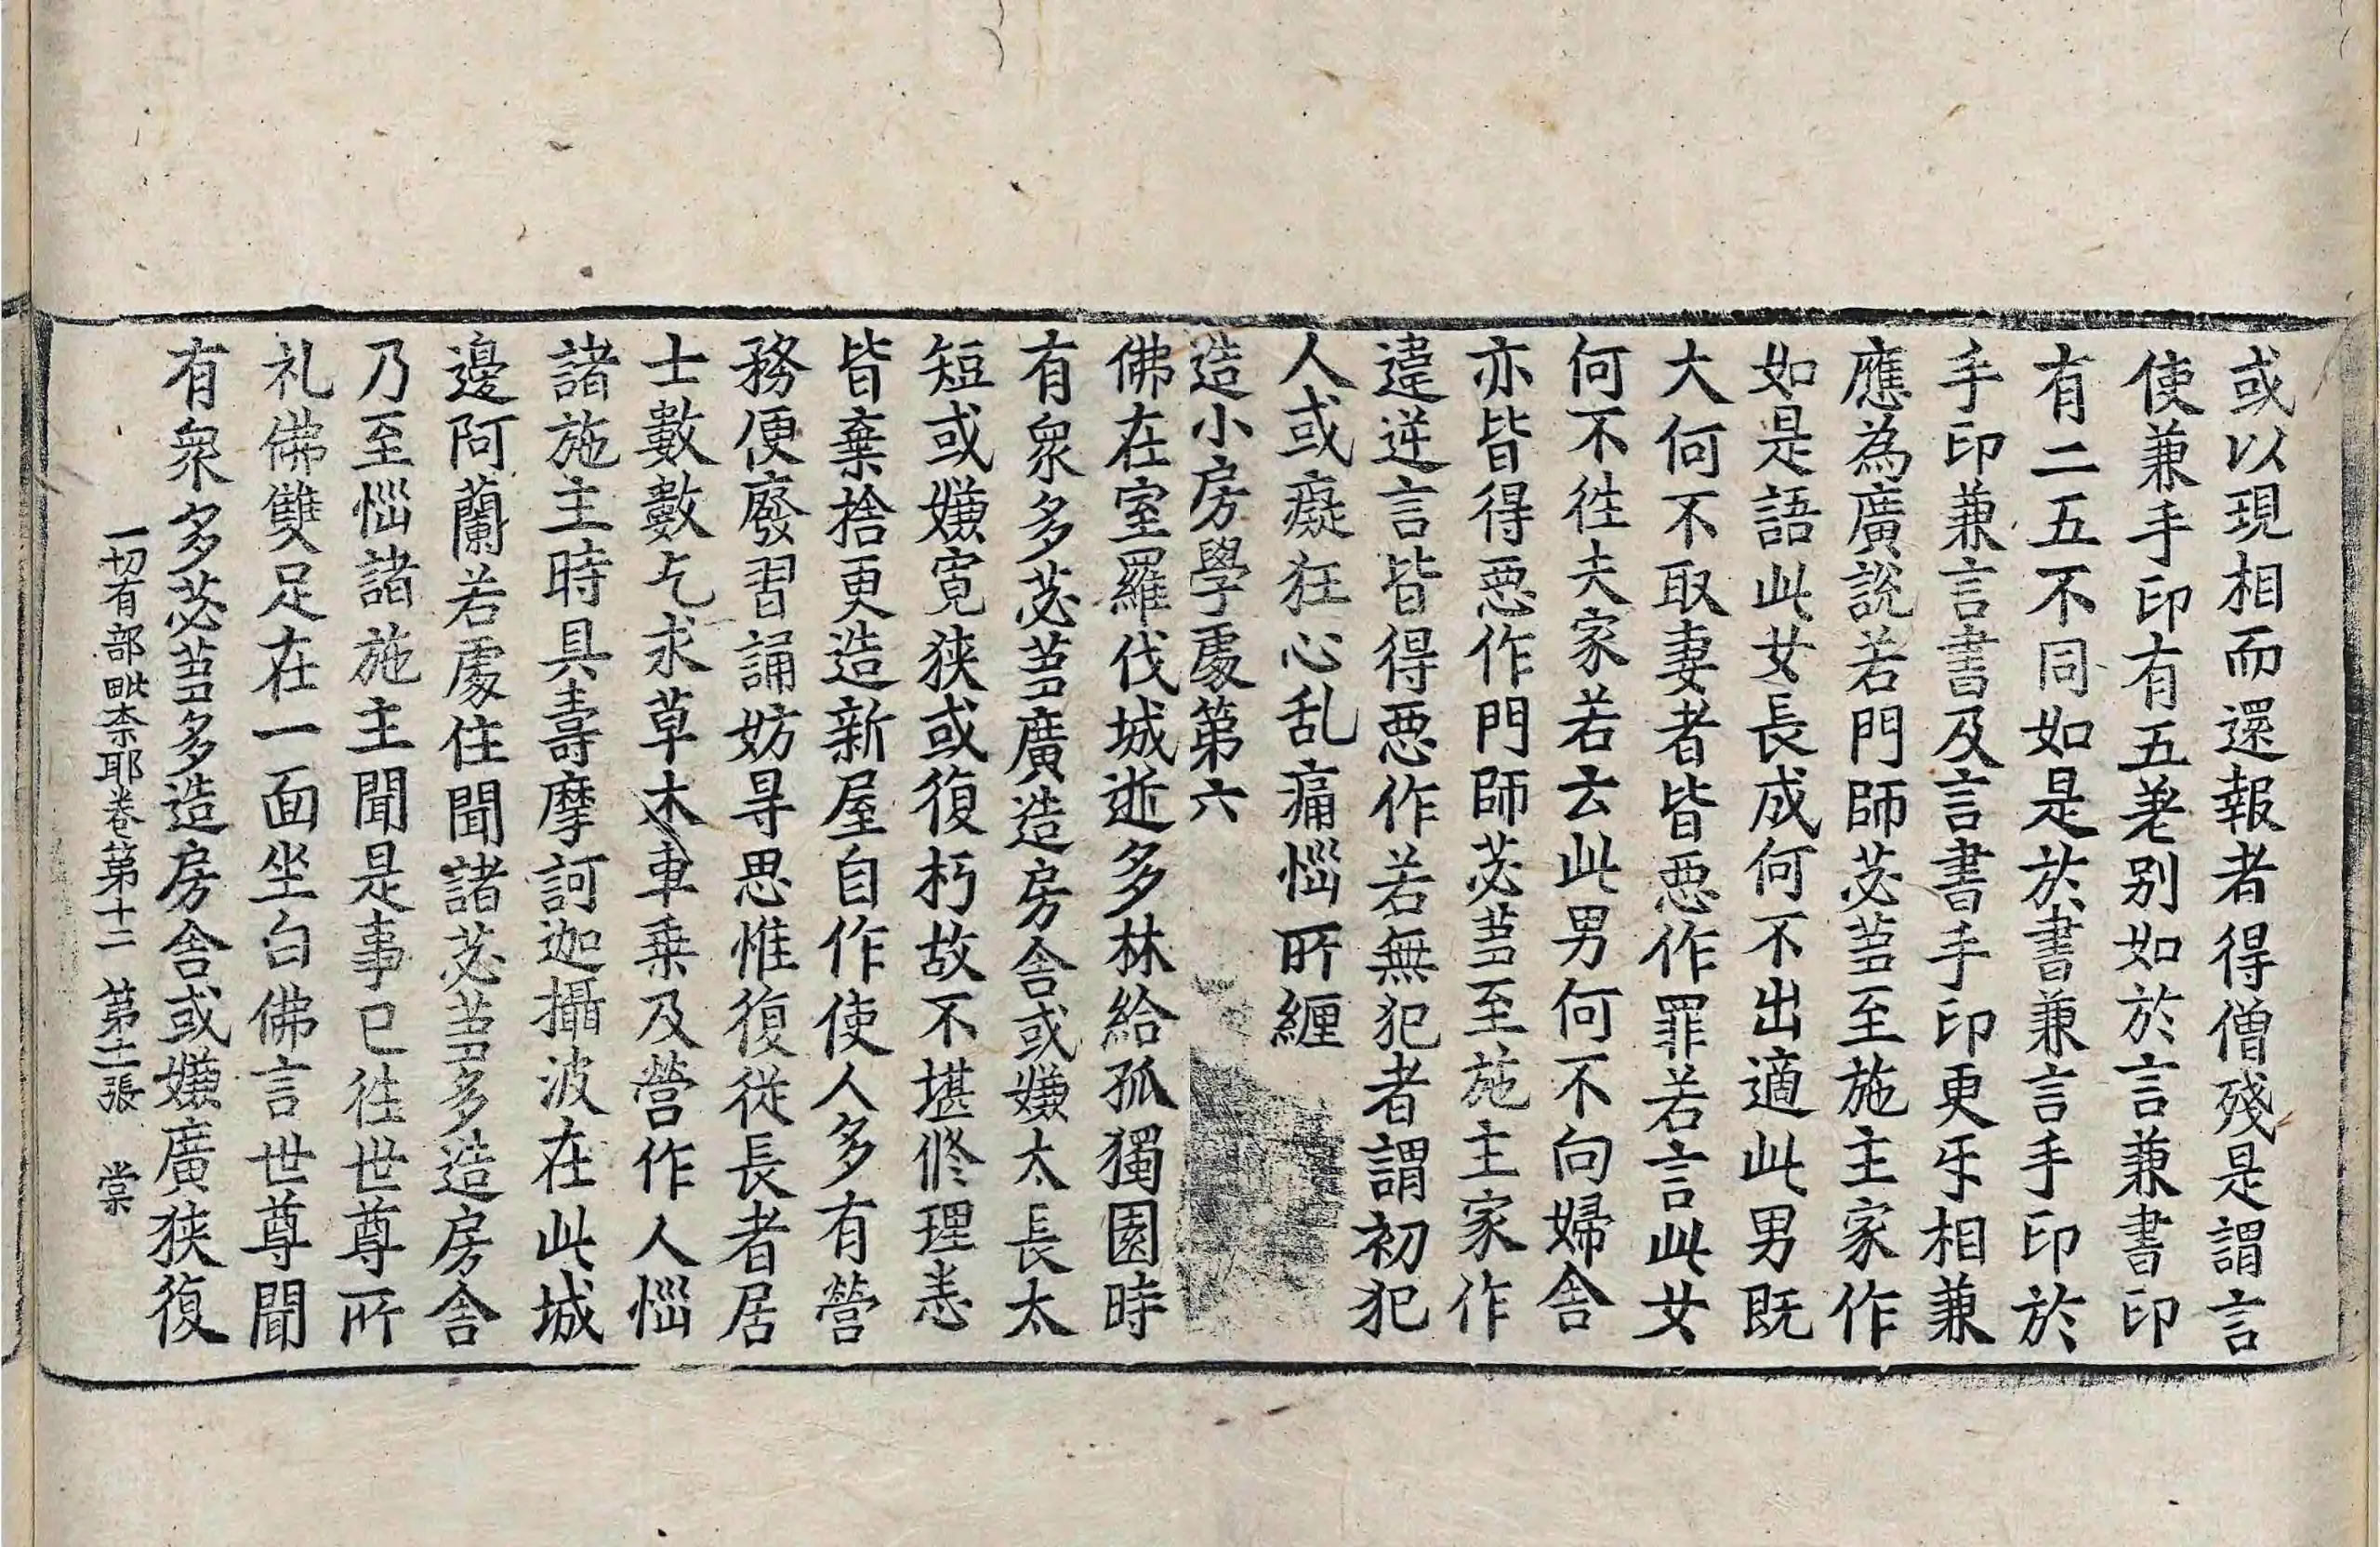 或以現相而還報者得僧殘是謂言
使兼手印有五差别如於言兼書印
有二五不同如是於書兼言手印於
手印兼言書及言書手印更牙相兼
應為廣説若門師苾蒭至施主家作
如是語此女長成何不出適此男既
大何不取妻者皆惡作罪若言此女
何不徃夫家若云此男何不向婦舎
亦皆得惡作門師苾蒭至施主家作
違逆言皆得惡作若無犯者謂初犯
人或癡狂心乱痛惱所纏
造小房學處第六
佛在室羅伐城逝多林給孤獨園時
有衆多苾蒭廣造房舎或嫌太長太
短或嫌寛狹或復朽故不堪修理悉
皆棄捨更造新屋自作使人多有營
務便廢習誦妨㝵思惟復從長者居
士數數乞求草木車乗及營作人惱
諸施主時具壽摩訶迦攝波在此城
邊阿蘭若處住聞諸苾蒭多造房舎
乃至惱諸施主聞是事已徃世尊所
礼佛雙足在一面坐白佛言世尊聞
有衆多苾蒭多造房舎或嫌廣狹復
一切有部毗柰耶卷第十二 第二張 棠